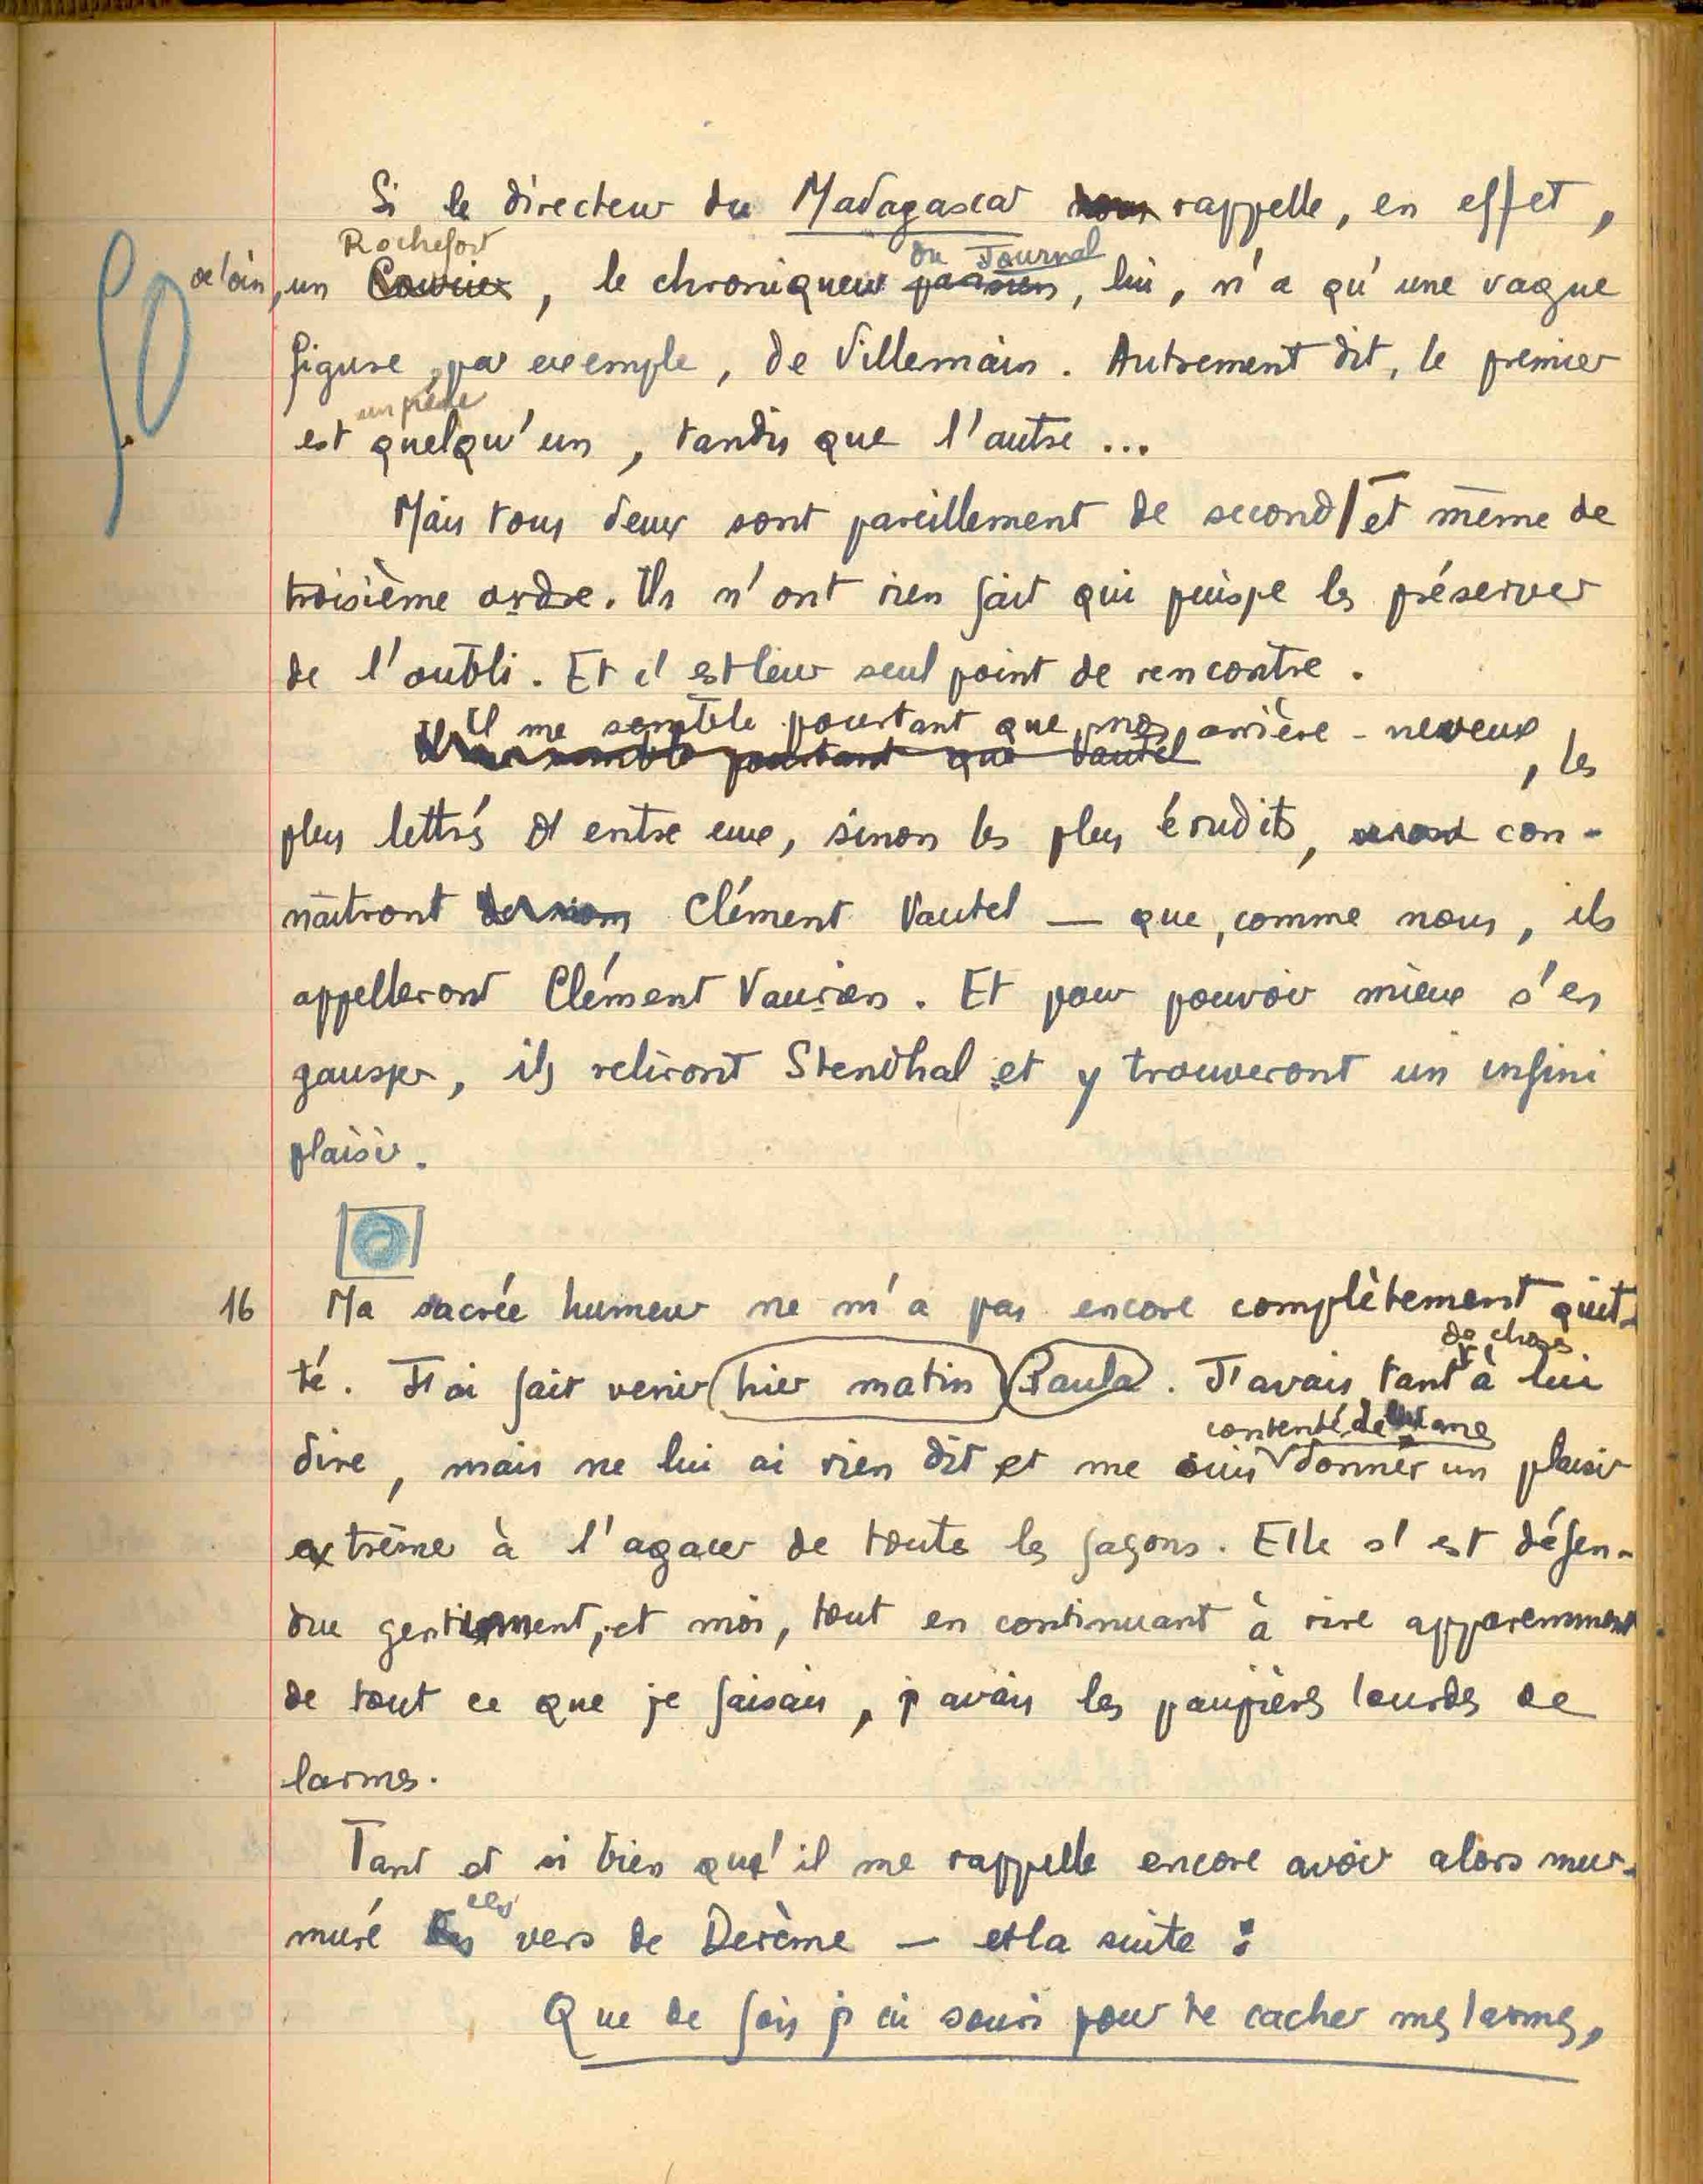 Si le directeur du Madagascar rappelle, en effet,
Rochefort
du Journal
de loin, un Courier, le chroniqueur parisien, lui, n'a qu'une vague
figure, par exemple, de Villemain. Autrement dit, le premier
un peu
est quelqu'un, tandis que l'autre ...
Mais tous deux sont pareillement de second et même de
troisième ordre. Ils n'ont rien fait qui puisse les préserver
de l'oubli. Et c'est leur seul point de rencontre.
Il me semble pourtant que mes arrière-neveux
Il me semble pourtant que Vautel , les
plus lettrés d'entre eux, sinon les plus érudits, con-
naîtront de nom Clément Vautel — que, comme nous, ils
appelleront Clément Vaurien. Et pour pouvoir mieux s'en
gausser, ils reliront Stendhal et y trouveront un infini
plaisir.
16 Ma sacrée humeur ne m'a pas encore complètement quit-
de choses
té. J'ai fait venir hier matin Paula. J'avais tant à lui
contenté de me
dire, mais ne lui ai rien dit et me suis donner un plaisir
extrême à l'agacer de toutes les façons. Elle s'est défen-
due gentiment, et moi, tout en continuant à rire apparemment
de tout ce que je faisais, j'avais les paupières lourdes de
larmes.
Tant et si bien qu'il me rappelle encore avoir alors mur-
ces
muré les vers de Derème — et la suite :
Que de fois j'ai souri pour te cacher mes larmes,